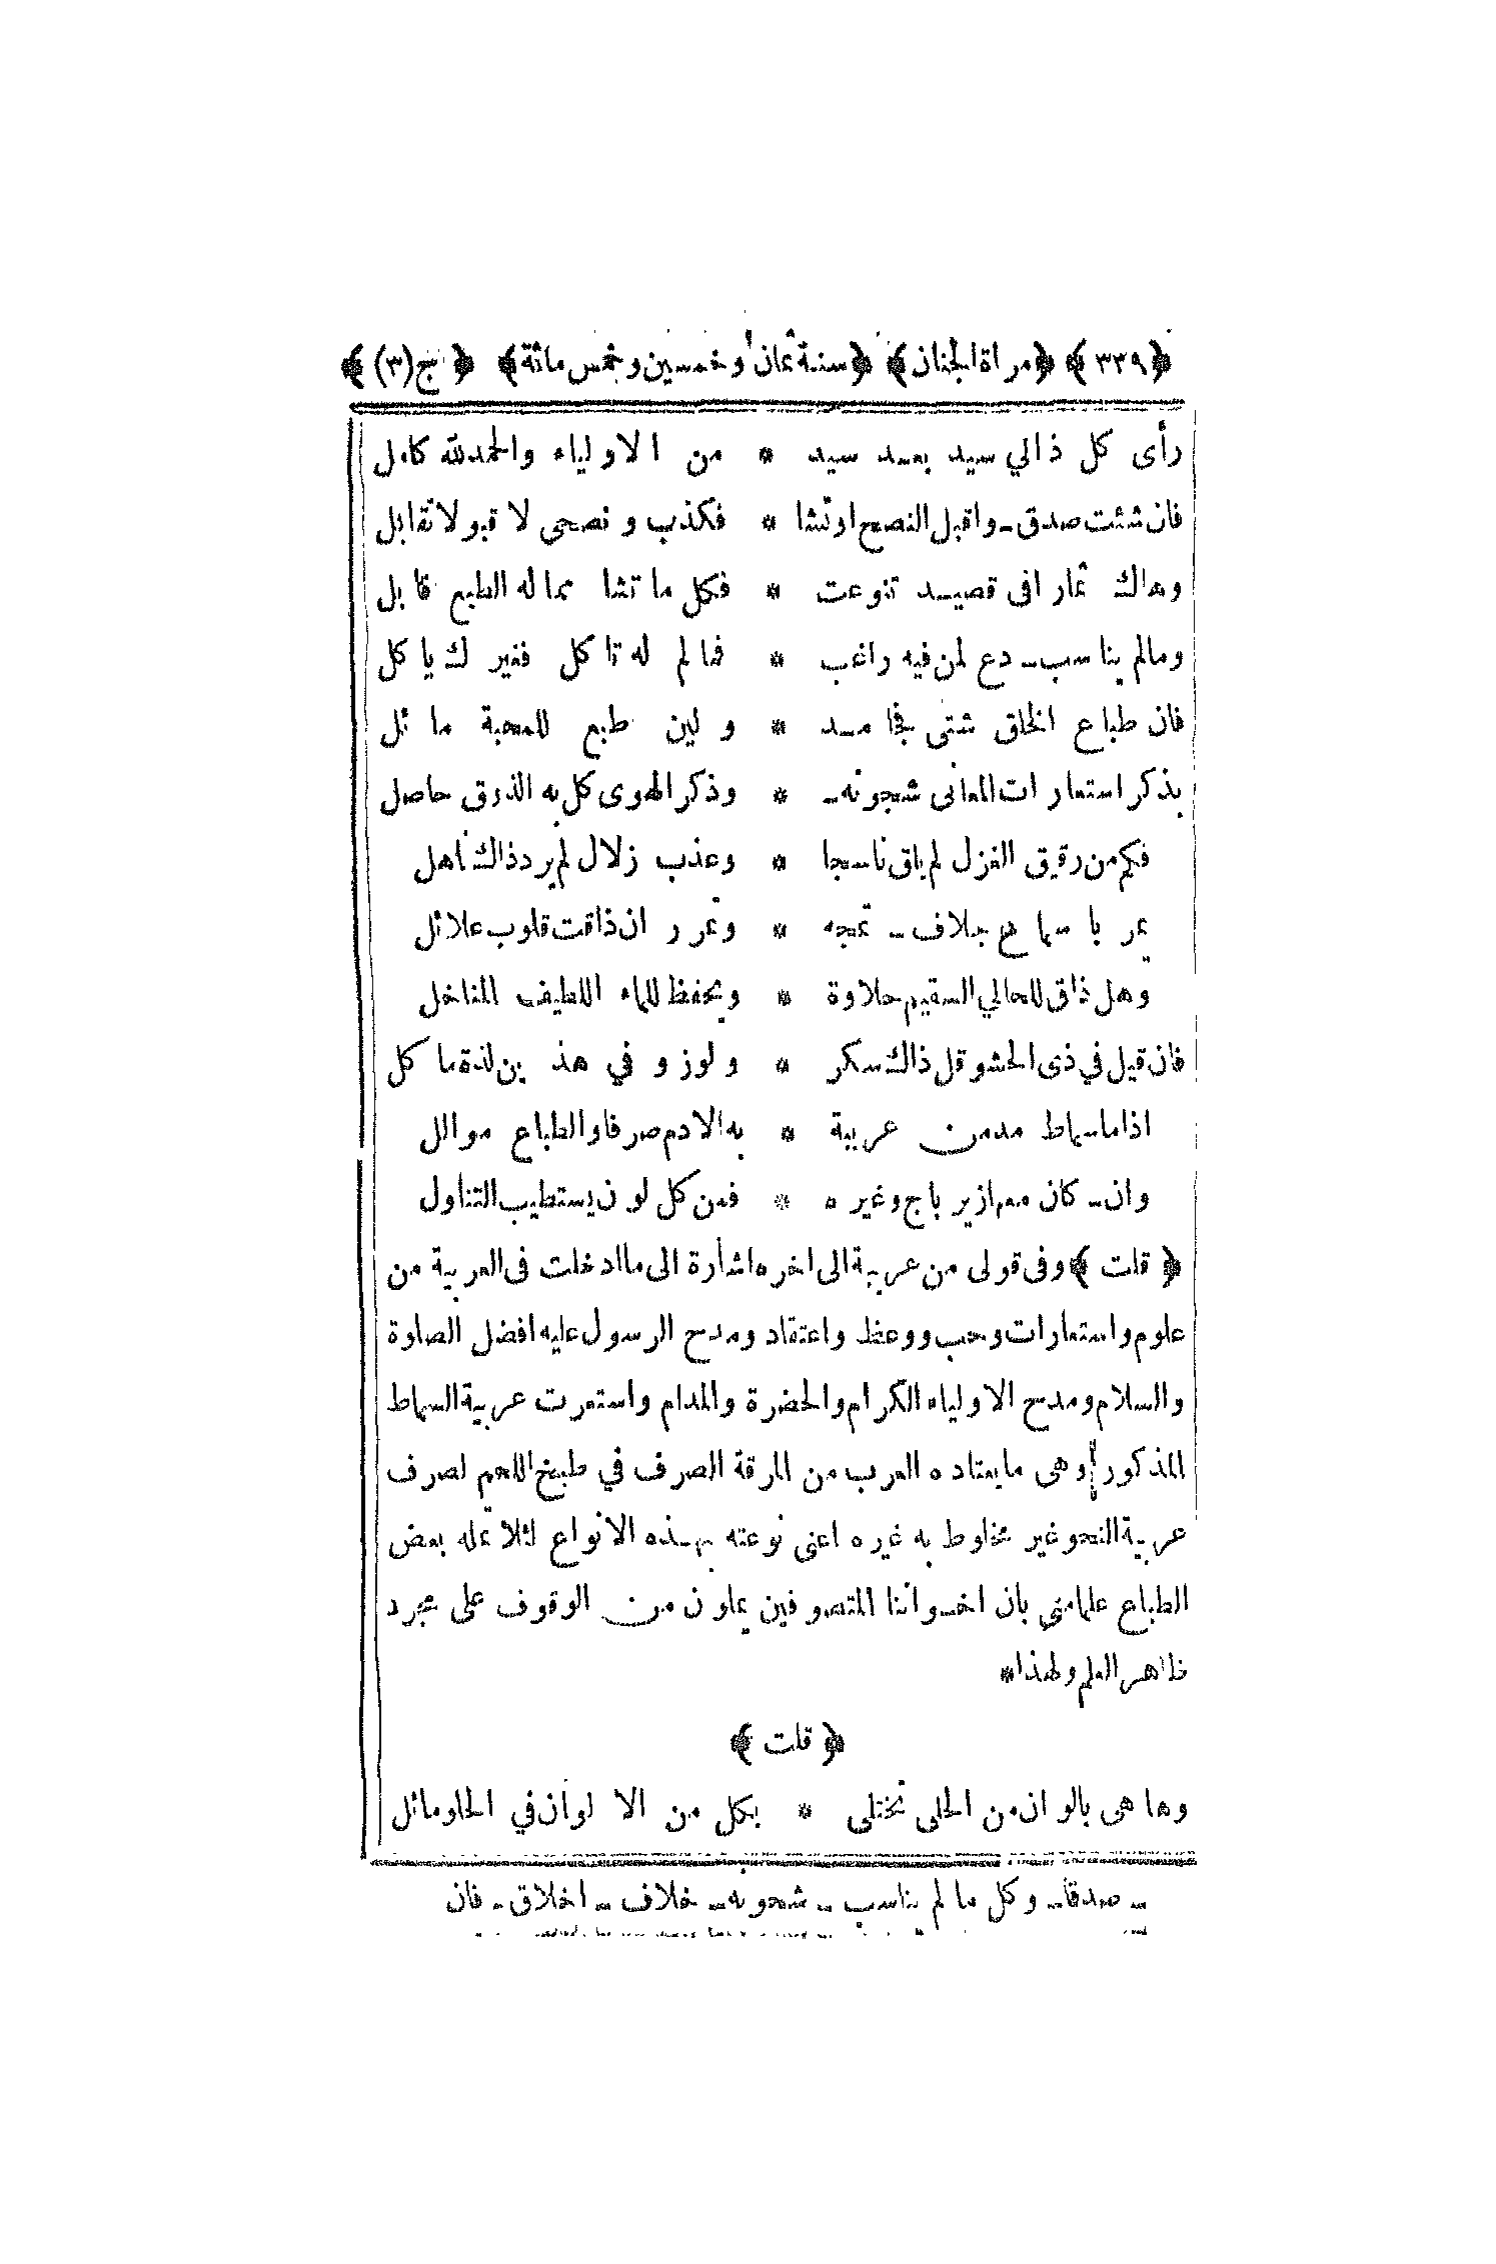 ﴿٣٣٩﴾ ﴿مراة الجنان﴾ ﴿سنة ثمان وخمسين وخمس مائة﴾ ﴿ ج(٣)﴾
رأى كل ذالي سيد بعد سيد * من الاولياء والحمدلله كامل
فان شئت صدق ـ واقبل النصح اوتشا * فكذب و نصحى لا قبولا تقابل
وهاك ثمارا فى قصيد تنوعت * فكل ما تشا مما له الطبع قابل
ومالم يناسب ـ دع لمن فيه راغب * فما لم له تاكل فغير ك ياكل
فان طباع الخلق شتى فجامد * و لين طبع للمحبة مائل
بذكر استعارات المعانى شجونه ـ * وذكر الهوى كل به الذوق حاصل
فكم من رقيق الغزل لم يلق ناسجا * وعذب زلال لم يرد ذاك ناهل
يمر با سماع جلاف ـ تمجه * وتمرر ان ذاقت قلوب علائل
وهل ذاق للحالي السقيم حلاوة * ويحفظ للماء اللطيف المناخل
فان قيل في ذى الحشو قل ذاك سكر * و لوز و في هذ ين لذة ماكل
اذا ما سماط مدمن عربية * به الادم صرفا والطباع موالل
وان ـ كان معه ازير باج وغير ه * فمن كل لون يستطيب التناول
﴿ قلت ﴾ وفى قولى من عربية الى اخره اشارة الى ما ادخلت فى العربية من
علوم واستعارات وحب ووعظ واعتقاد ومدح الرسول عليه افضل الصلوة
والسلام ومدح الاولياء الكرام والحضرة والمدام واستعرت عربية السماط
المذكور وهى ما يعتاد ه العرب من المرقة الصرف في طبيخ اللحم لصرف
عربية النحو غير مخلوط به غير ه اعنى نوعته بهذه الانواع لئلا تمله بعض
الطباع علما منى بان اخواننا المتصوفين يملون من الوقوف على مجرد
ظاهر العلم ولهذا *
﴿ قلت ﴾
وها هى بالوان من الحلى تختلى * بكل من الا لوان في الحلو مائل
ـ صدقا ـ وكل ما لم يناسب ـ شحونه ـ خلاف ـ اخلاق ـ فان